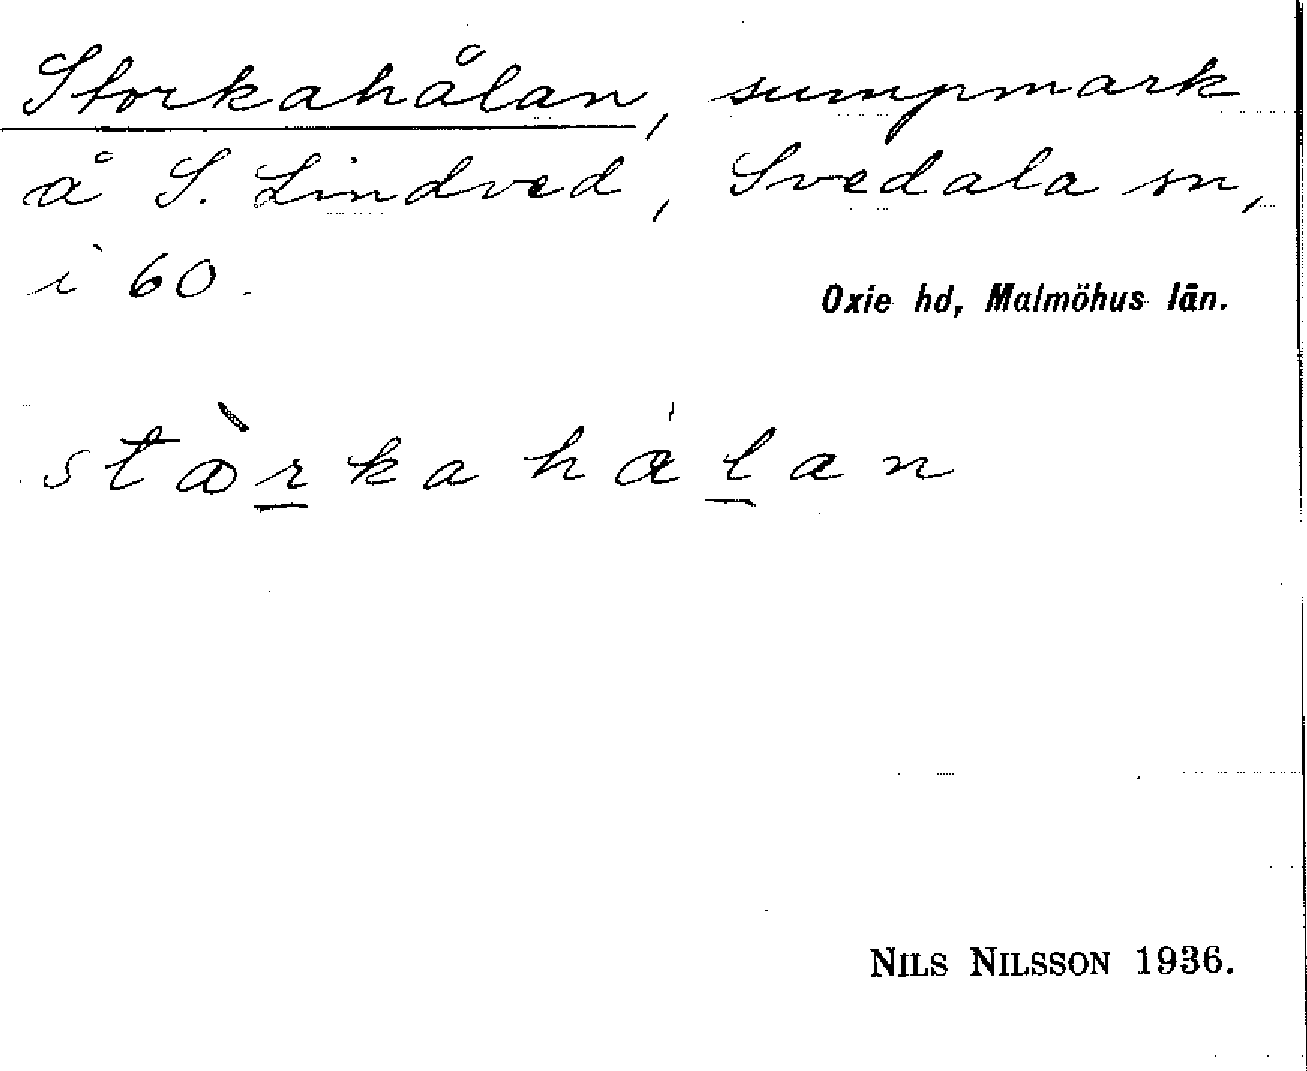 Storkahålan, sumpmark
å S. Lindved, Svedala sn,
i 60.
Oxie hd, Malmöhus län.
stàrkahálan
NILS NILSSON 1936.